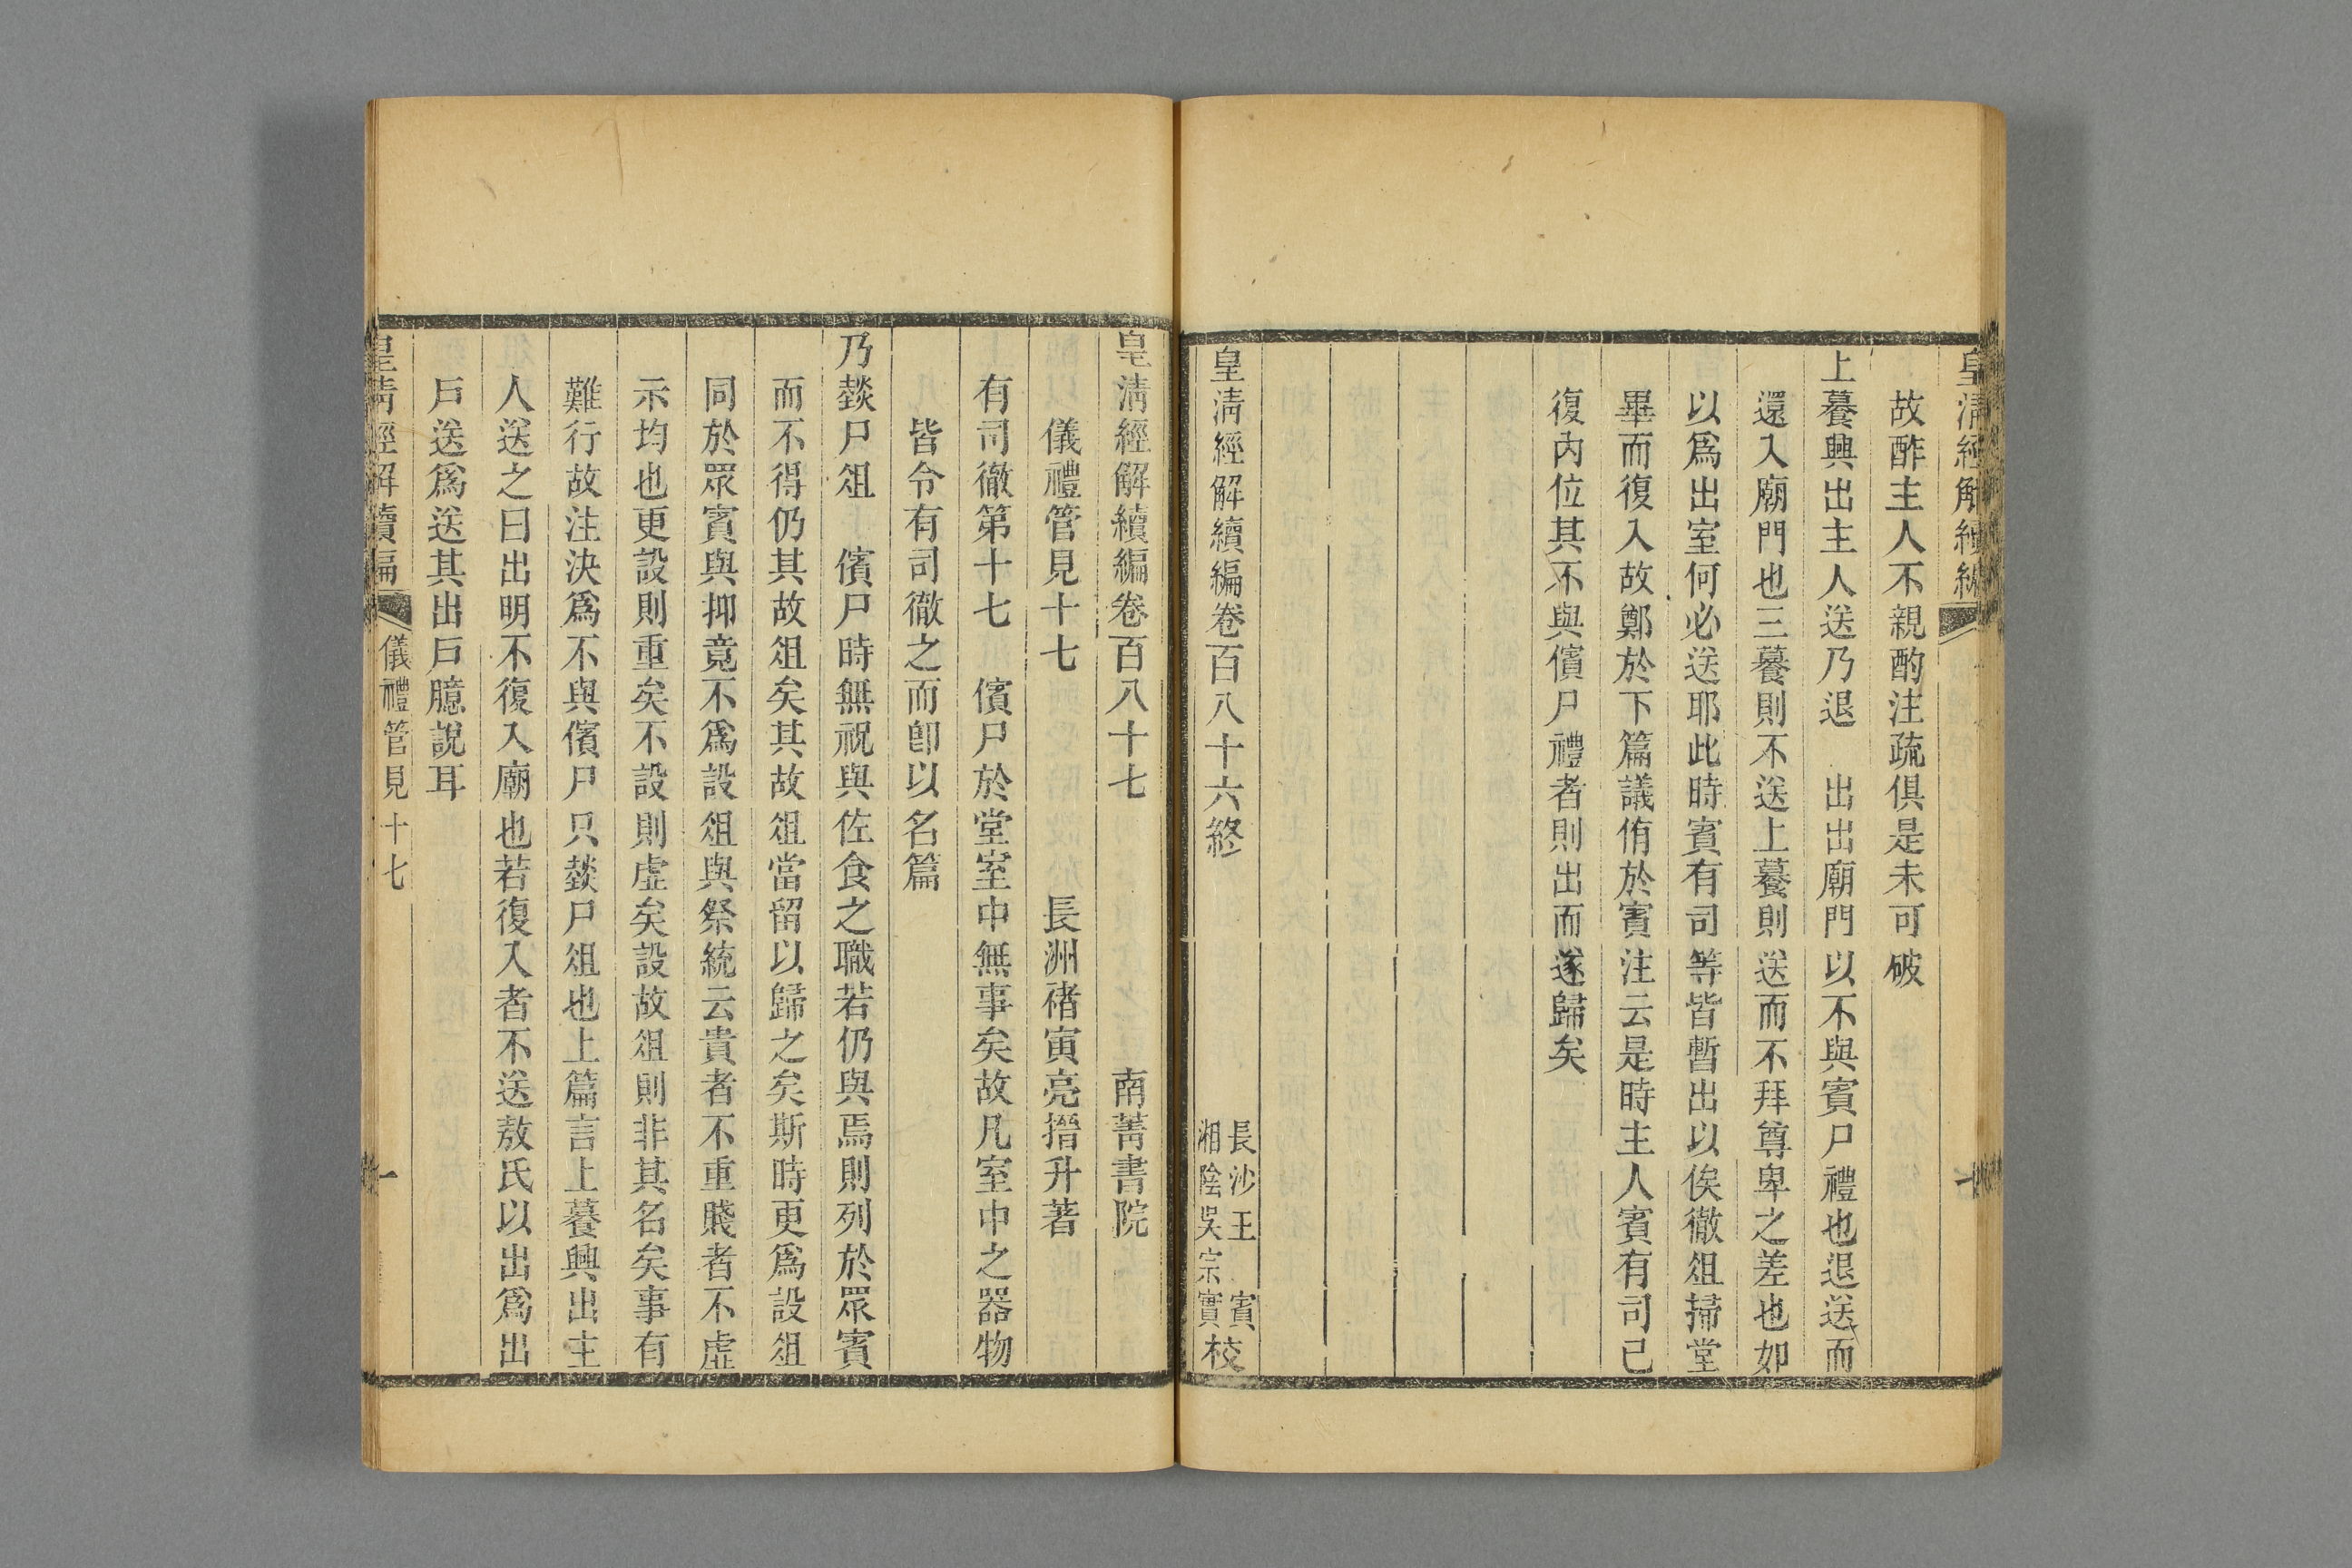 皇清經解續編
故酢主人不親酌注疏俱是未可破
上養興出主人送乃退　出出廟門以不與賓尸禮也退送而
還入廟門也三養則不送上養則送而不拜尊卑之差也如
以爲出室何必送耶此時賓有司等皆暫出以俟徹俎掃堂
畢而復入故鄭於下篇議侑於賓注云是時主人賓有司已
復內位其不與儐尸禮者則出而遂歸矣
皇清經解續編卷百八十六終
長沙王　賓
湘陰吳宗實校
皇清經解續編卷百八十七　南菁書院
儀禮管見十七　長洲褚寅亮搢升著
有司徹第十七　儐尸於堂室中無事矣故凡室中之器物
皆令有司徹之而卽以名篇
乃燅尸俎　儐尸時無祝與佐食之職若仍與焉則列於眾賓
而不得仍其故俎矣其故俎當留以歸之矣斯時更爲設俎
同於眾賓與抑竟不爲設俎與祭統云貴者不重賤者不虛
示均也更設則重矣不設則虛矣設故俎則非其名矣事有
難行故注決爲不與儐尸只燅尸俎也上篇言上養興出主
人送之曰出明不復入廟也若復入者不送敖氏以出爲出
戶送爲送其出戶臆說耳
皇清經解續編　儀禮管見十七　一